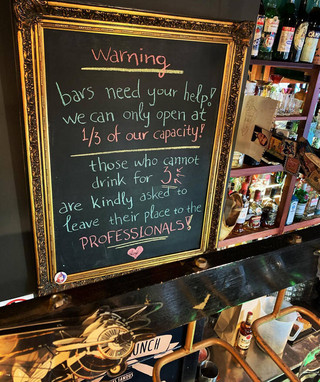 warning
bars need your help!
we can only open at
1/3 of our capacity!
those who cannot
drink for 3
are kindly asked to
leave their place to the
PROFESSIONALS!